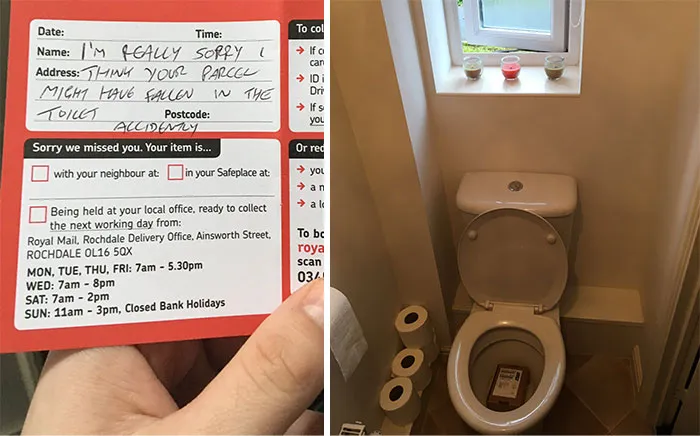 Date: Time:
Name: I'M REALLY SORRY I
Address: THINK YOUR PARCEL
MIGHT HAVE FALLEN IN THE
TOILET Postcode:
ACCIDENTLY
Sorry we missed you. Your item is...
with your neighbour at: in your Safeplace at:
Being held at your local office, ready to collect
the next working day from:
Royal Mail, Rochdale Delivery Office, Ainsworth Street,
ROCHDALE OL16 5QX
MON, TUE, THU, FRI: 7am - 5.30pm
WED: 7am - 8pm
SAT: 7am - 2pm
SUN: 11am - 3pm, Closed Bank Holidays
To col
→ If
car
→ ID i
Dri
→ If s
you
Or rec
→ you
→ a n
→ a lo
To bo
roya
scan
034